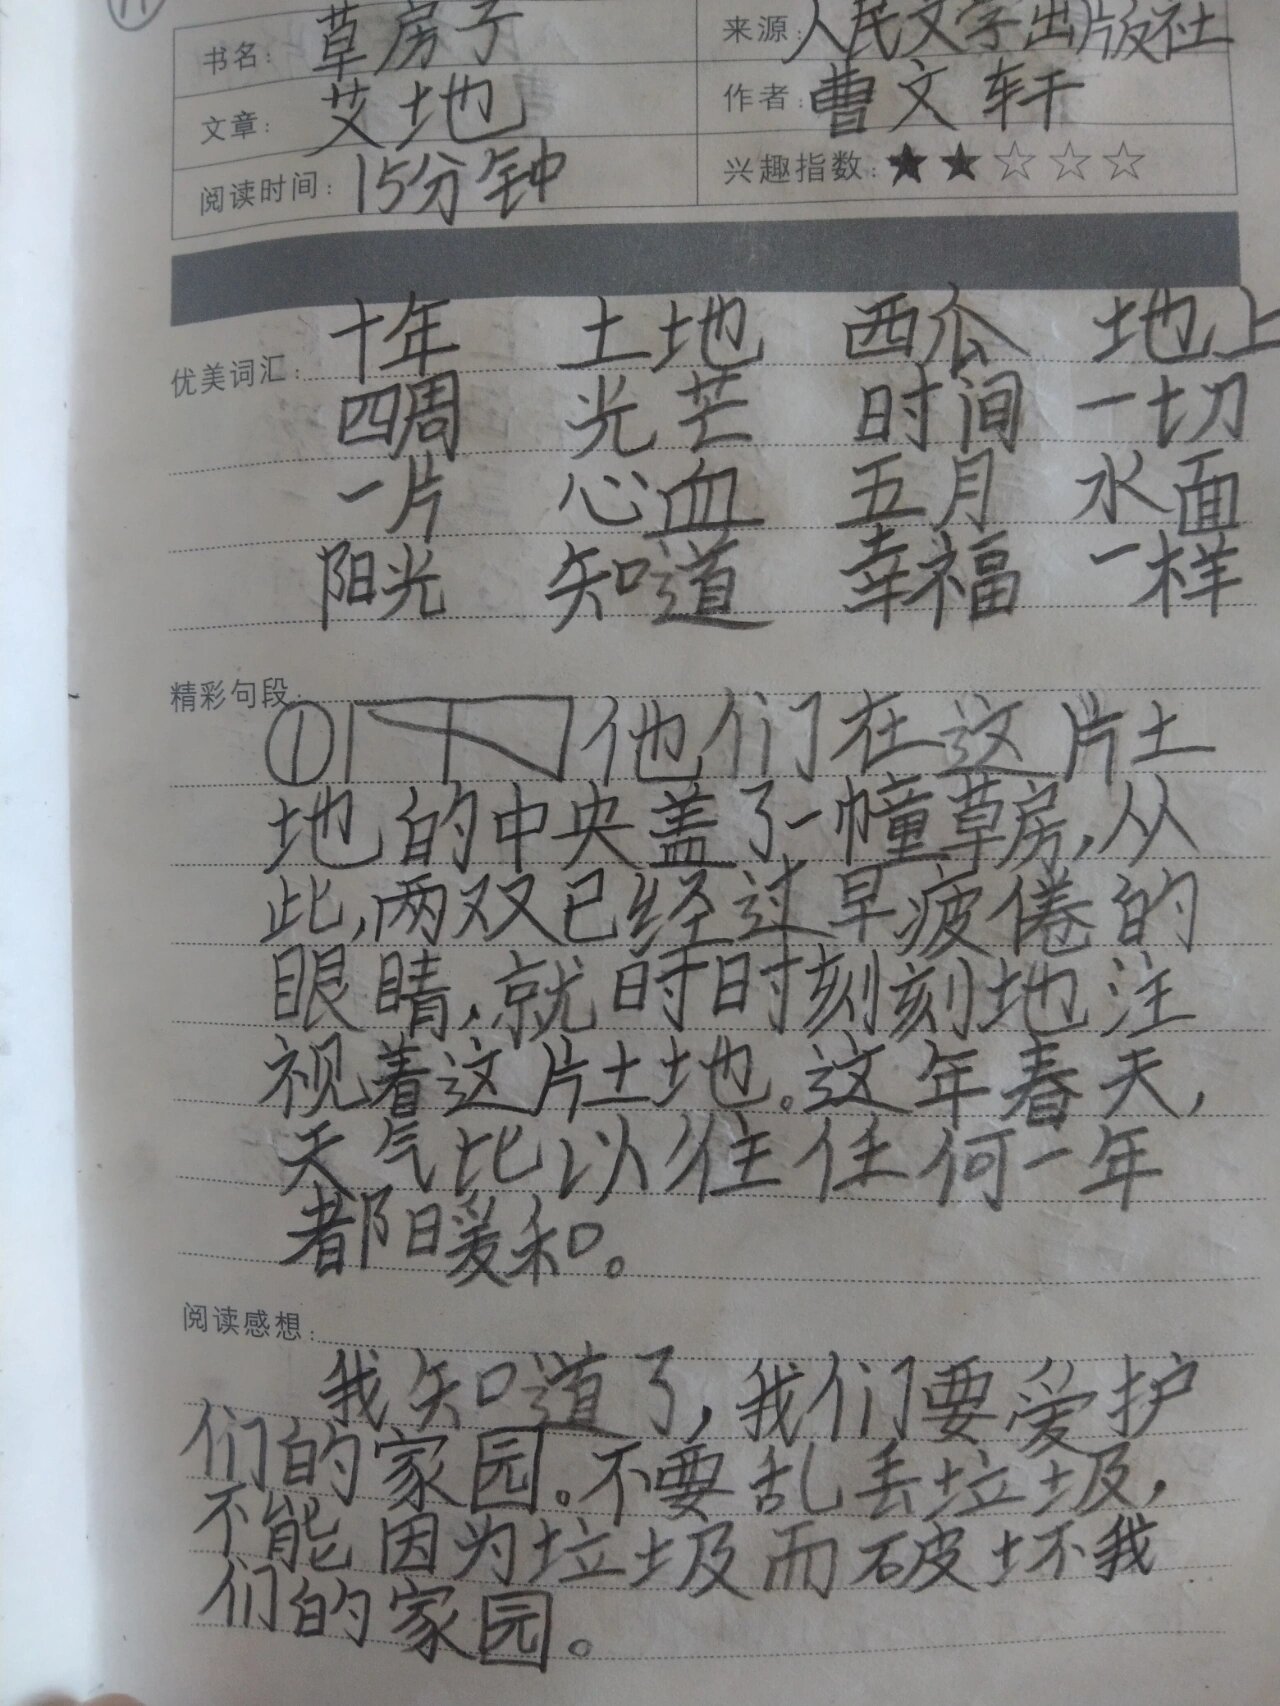 书名: 草房子 来源: 人民文学出版社
文章: 艾地 作者: 曹文轩
阅读时间: 15分钟 兴趣指数: ★★☆☆☆
优美词汇: 十年 土地 西瓜 地上
四周 光芒 时间 一切
一片 心血 五月 水面
阳光 知道 幸福 一样
精彩句段:
① 他们在这片土
地的中央盖了一幢草房,从
此,两双已经过早疲倦的
眼睛,就时时刻刻地注
视着这片土地。这年春天,
天气比以往任何一年
都阳暖和。
阅读感想:
我知道了,我们要爱护
们的家园。不要乱丢垃圾,
不能因为垃圾而破坏我
们的家园。